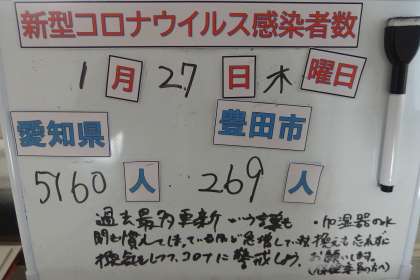 新型コロナウイルス感染者数
1月27日木曜日
愛知県 豊田市
5160人 269人
過去最多更新という言葉も
聞き慣れてしまっているほど急増している。
換気をして、コロナに警戒しよう。
・加湿器の水
換えも忘れずに
お願いします。